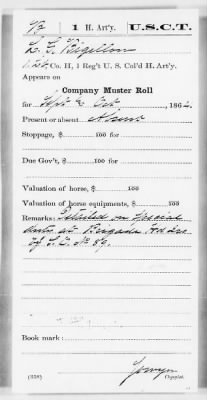 B | 1 H. Art'y. | U.S.C.T.
L. G. Bigellow
Co. H, 1 Reg't U. S. Col'd H. Art'y.
Appears on
Company Muster Roll
for Sept & Oct, 186
Present or absent Absent
Stoppage, $ 100 for
Due Gov't, $ 100 for
Valuation of horse, $ 100
Valuation of horse equipments, $ 100
Remarks: Detailed on Special
duty at Brigade Hd Qrs
by S.O. No 89.
Book mark:
(358) Copyist.